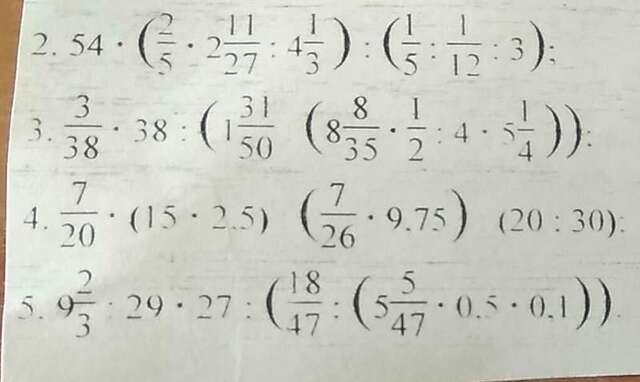 2. 54 · (2/5 · 2 11/27 : 4 1/3) : (1/5 : 1/12 : 3);
3. 3/38 · 38 : (1 31/50 (8 8/35 · 1/2 : 4 · 5 1/4)):
4. 7/20 · (15 · 2.5) (7/26 · 9.75) (20 : 30):
5. 9 2/3 : 29 · 27 : (18/47 : (5 5/47 · 0.5 · 0,1)).